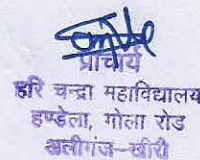 प्राचार्य
हरि चन्द्रा महाविद्यालय
हण्डेला, गोला रोड
अलीगंज-खीरी